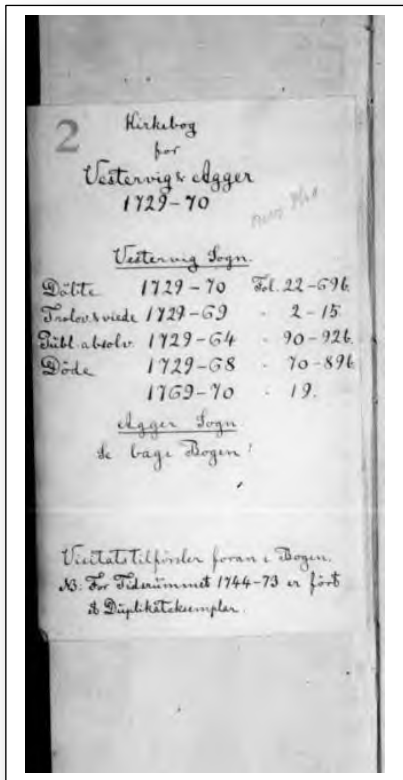 2
Kirkebog
for
Vestervig & Agger
1729-70
Vestervig Sogn.
Döbte 1729-70 Fol. 22-69b
Trolov. & viede 1729-69 - 2-15
Publ. absolv. 1729-64 - 90-92b.
Döde 1729-68 - 70-89b
1769-70 - 19.
Agger Sogn
Se bage i Bogen!
Visitatstilförsler foran i Bogen.
NB: For Tidsrummet 1744-73 er fört
et Duplikateksemplar.